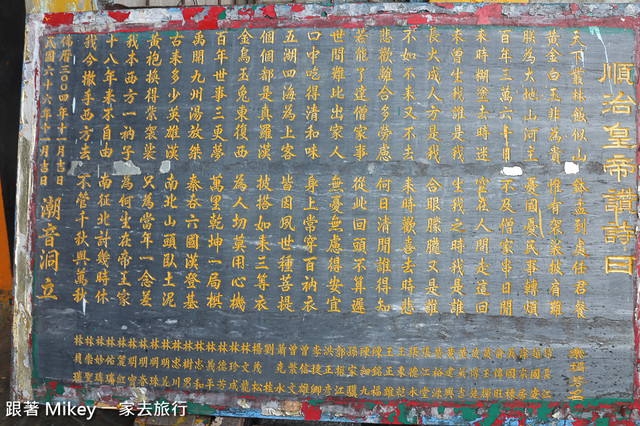 順治皇帝讚詩曰
天下叢林飯似山 鉢盂到處任君餐
黃金白玉非為貴 唯有袈裟披肩難
朕為大地山河主 憂國憂民事轉煩
百年三萬六千日 不及僧家半日閒
來時糊塗去時迷 空在人間走這回
未曾生我誰是我 生我之時我是誰
長大成人方是我 合眼朦朧又是誰
不如不來又不去 來時歡喜去時悲
悲歡離合多勞慮 何日清閒誰得知
若能了達僧家事 從此回頭不算遲
世間難比出家人 無憂無慮得安宜
口中吃得清和味 身上常穿百衲衣
五湖四海為上客 皆因夙世種菩提
個個都是真羅漢 披搭如來三等衣
金烏玉兔東復西 為人切莫用心機
百年世事三更夢 萬里乾坤一局棋
禹開九州湯放桀 秦吞六國漢登基
古來多少英雄漢 南北山頭臥土泥
黃袍換得紫袈裟 只為當年一念差
我本西方一衲子 為何生在帝王家
十八年來不自由 南征北討幾時休
我今撒手西方去 不管千秋與萬秋
佛曆三〇〇四年十一月吉日
民國六十六年十一月吉日 潮音洞立
跟著 Mikey 一家去旅行